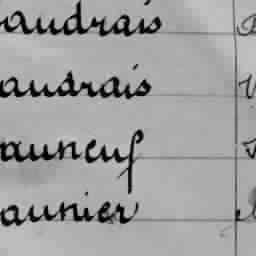 audrais
audrais
auneuf
aunier